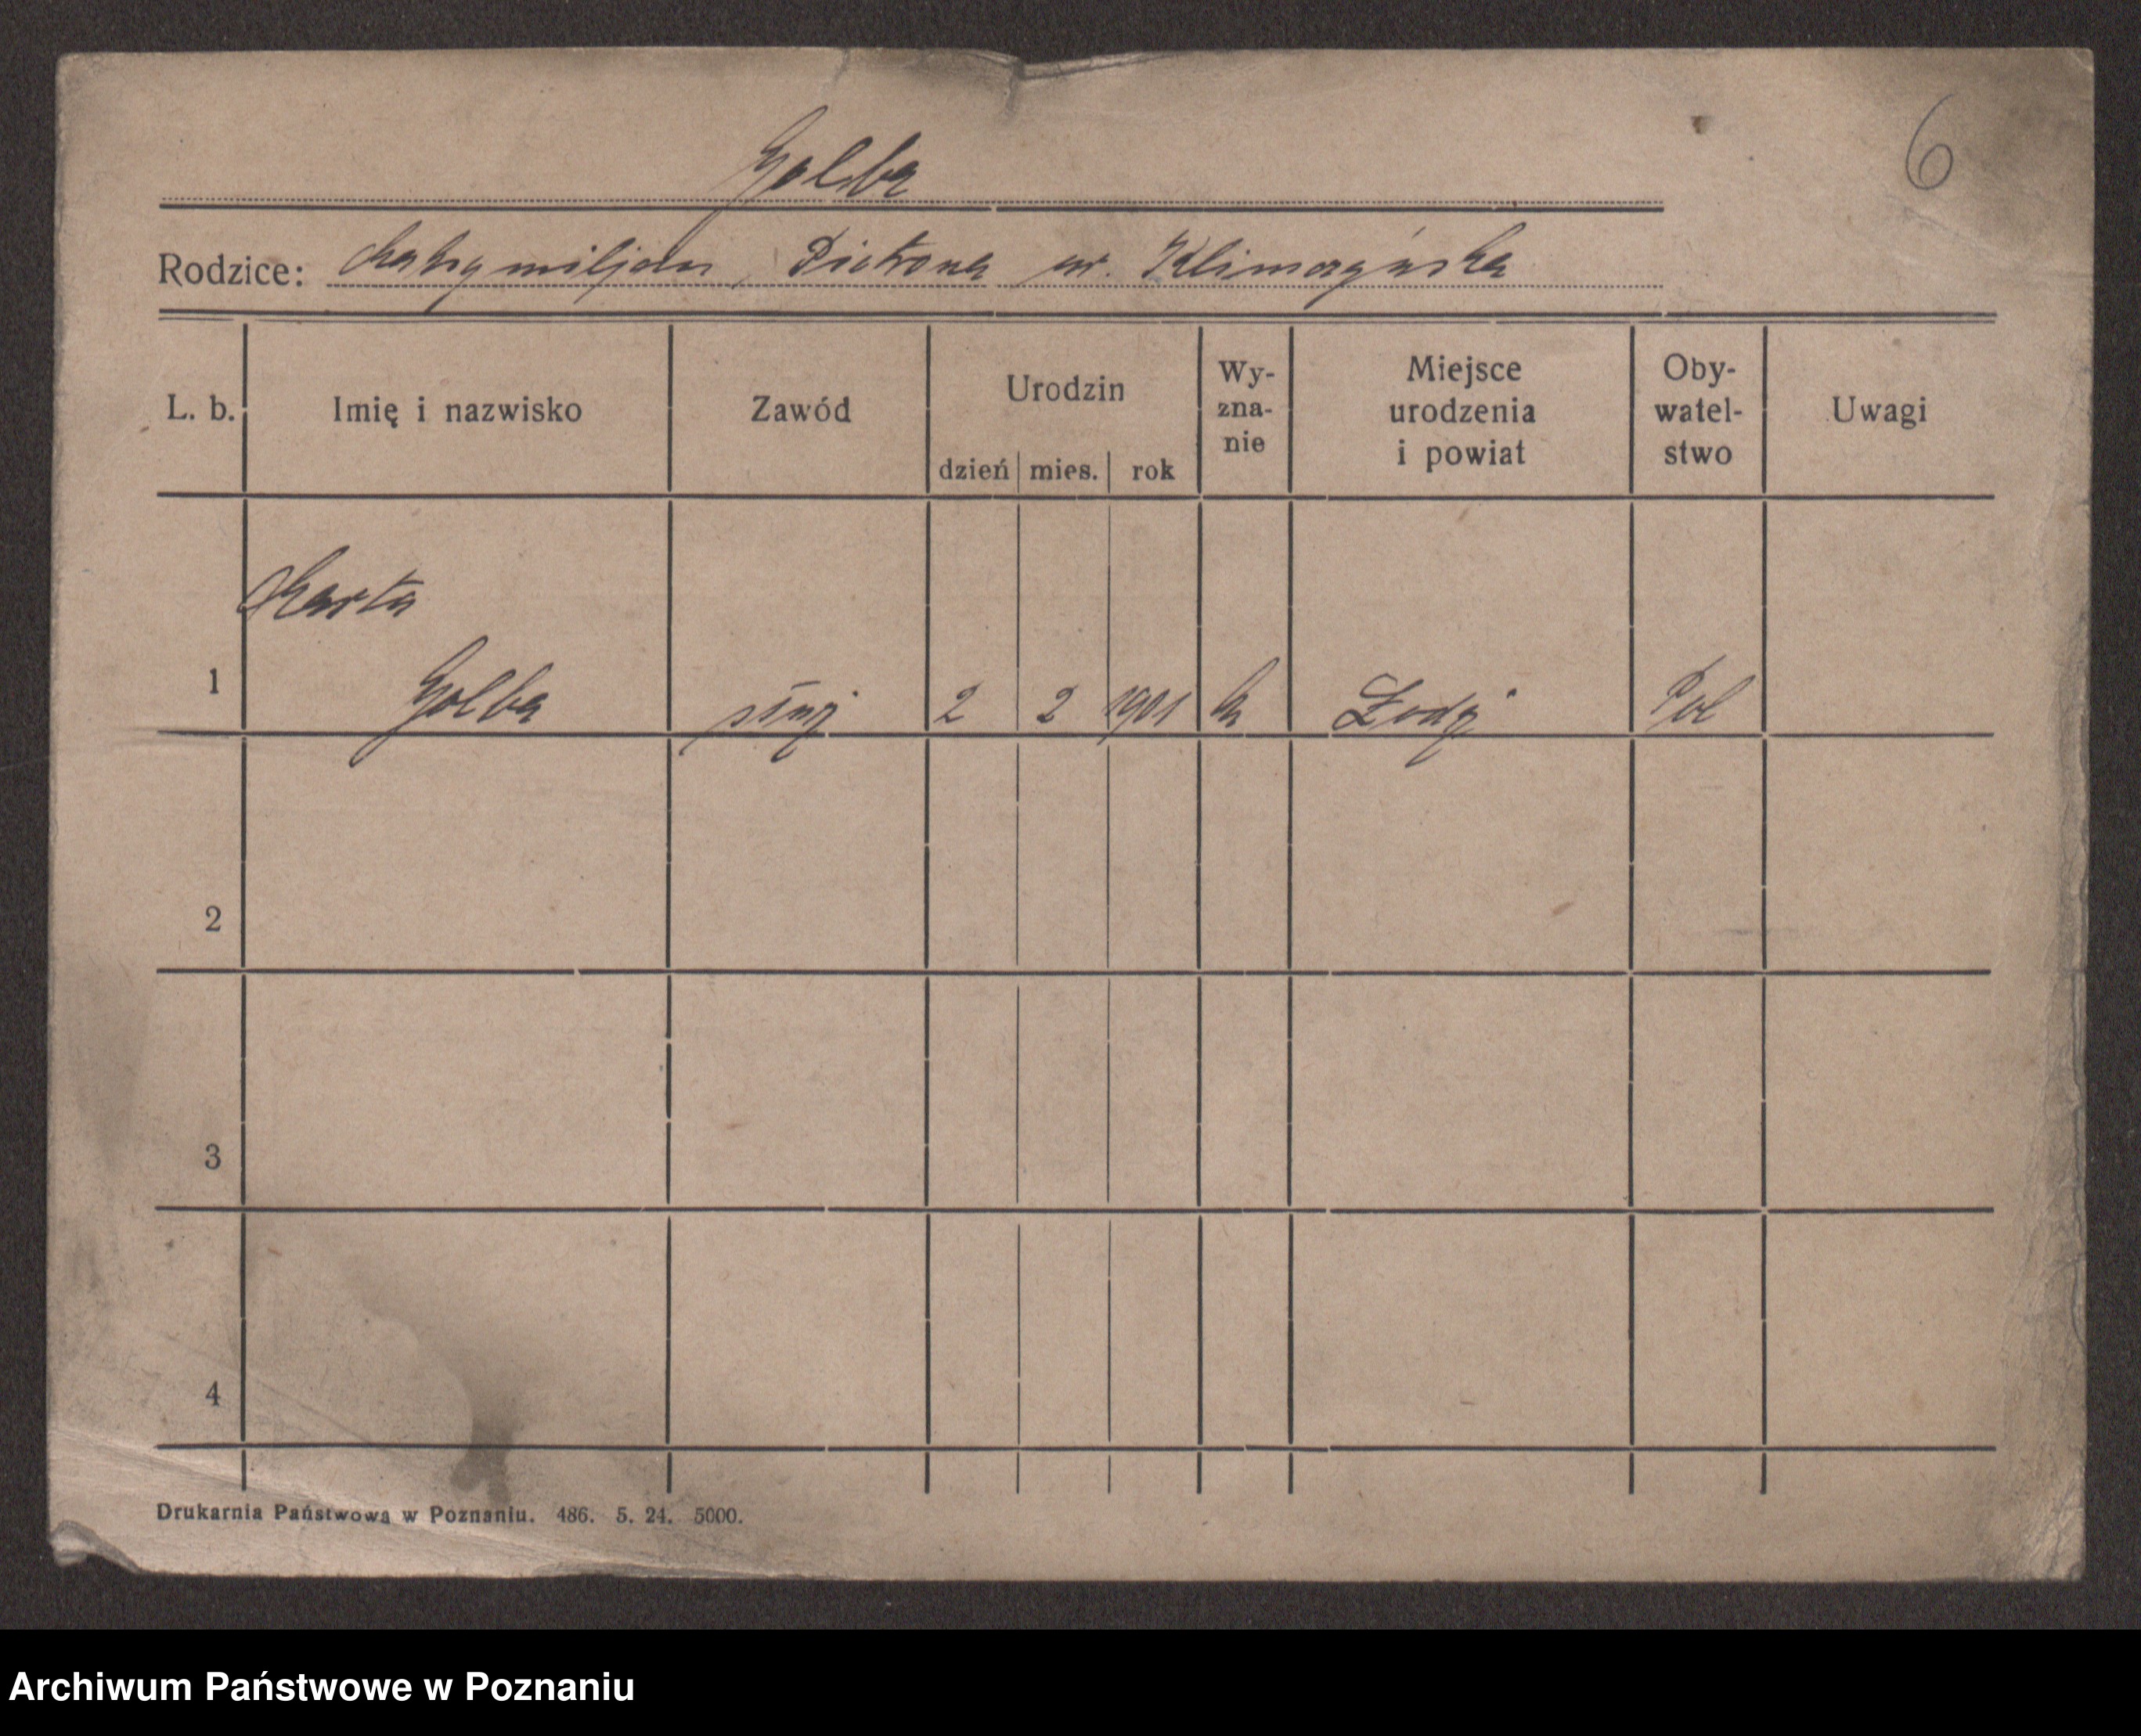 Golba
6
Rodzice: Maksymiljan, Pietrona ur. Klimczyńska
L. b. Imię i nazwisko Zawód Urodzin dzień mies. rok Wy-zna-nie Miejsce urodzenia i powiat Oby-watel-stwo Uwagi
Marta
1 Golba służ 2 2 1901 k Łodź Pol
2
3
4
Drukarnia Państwowa w Poznaniu. 486. 5. 24. 5000.
Archiwum Państwowe w Poznaniu